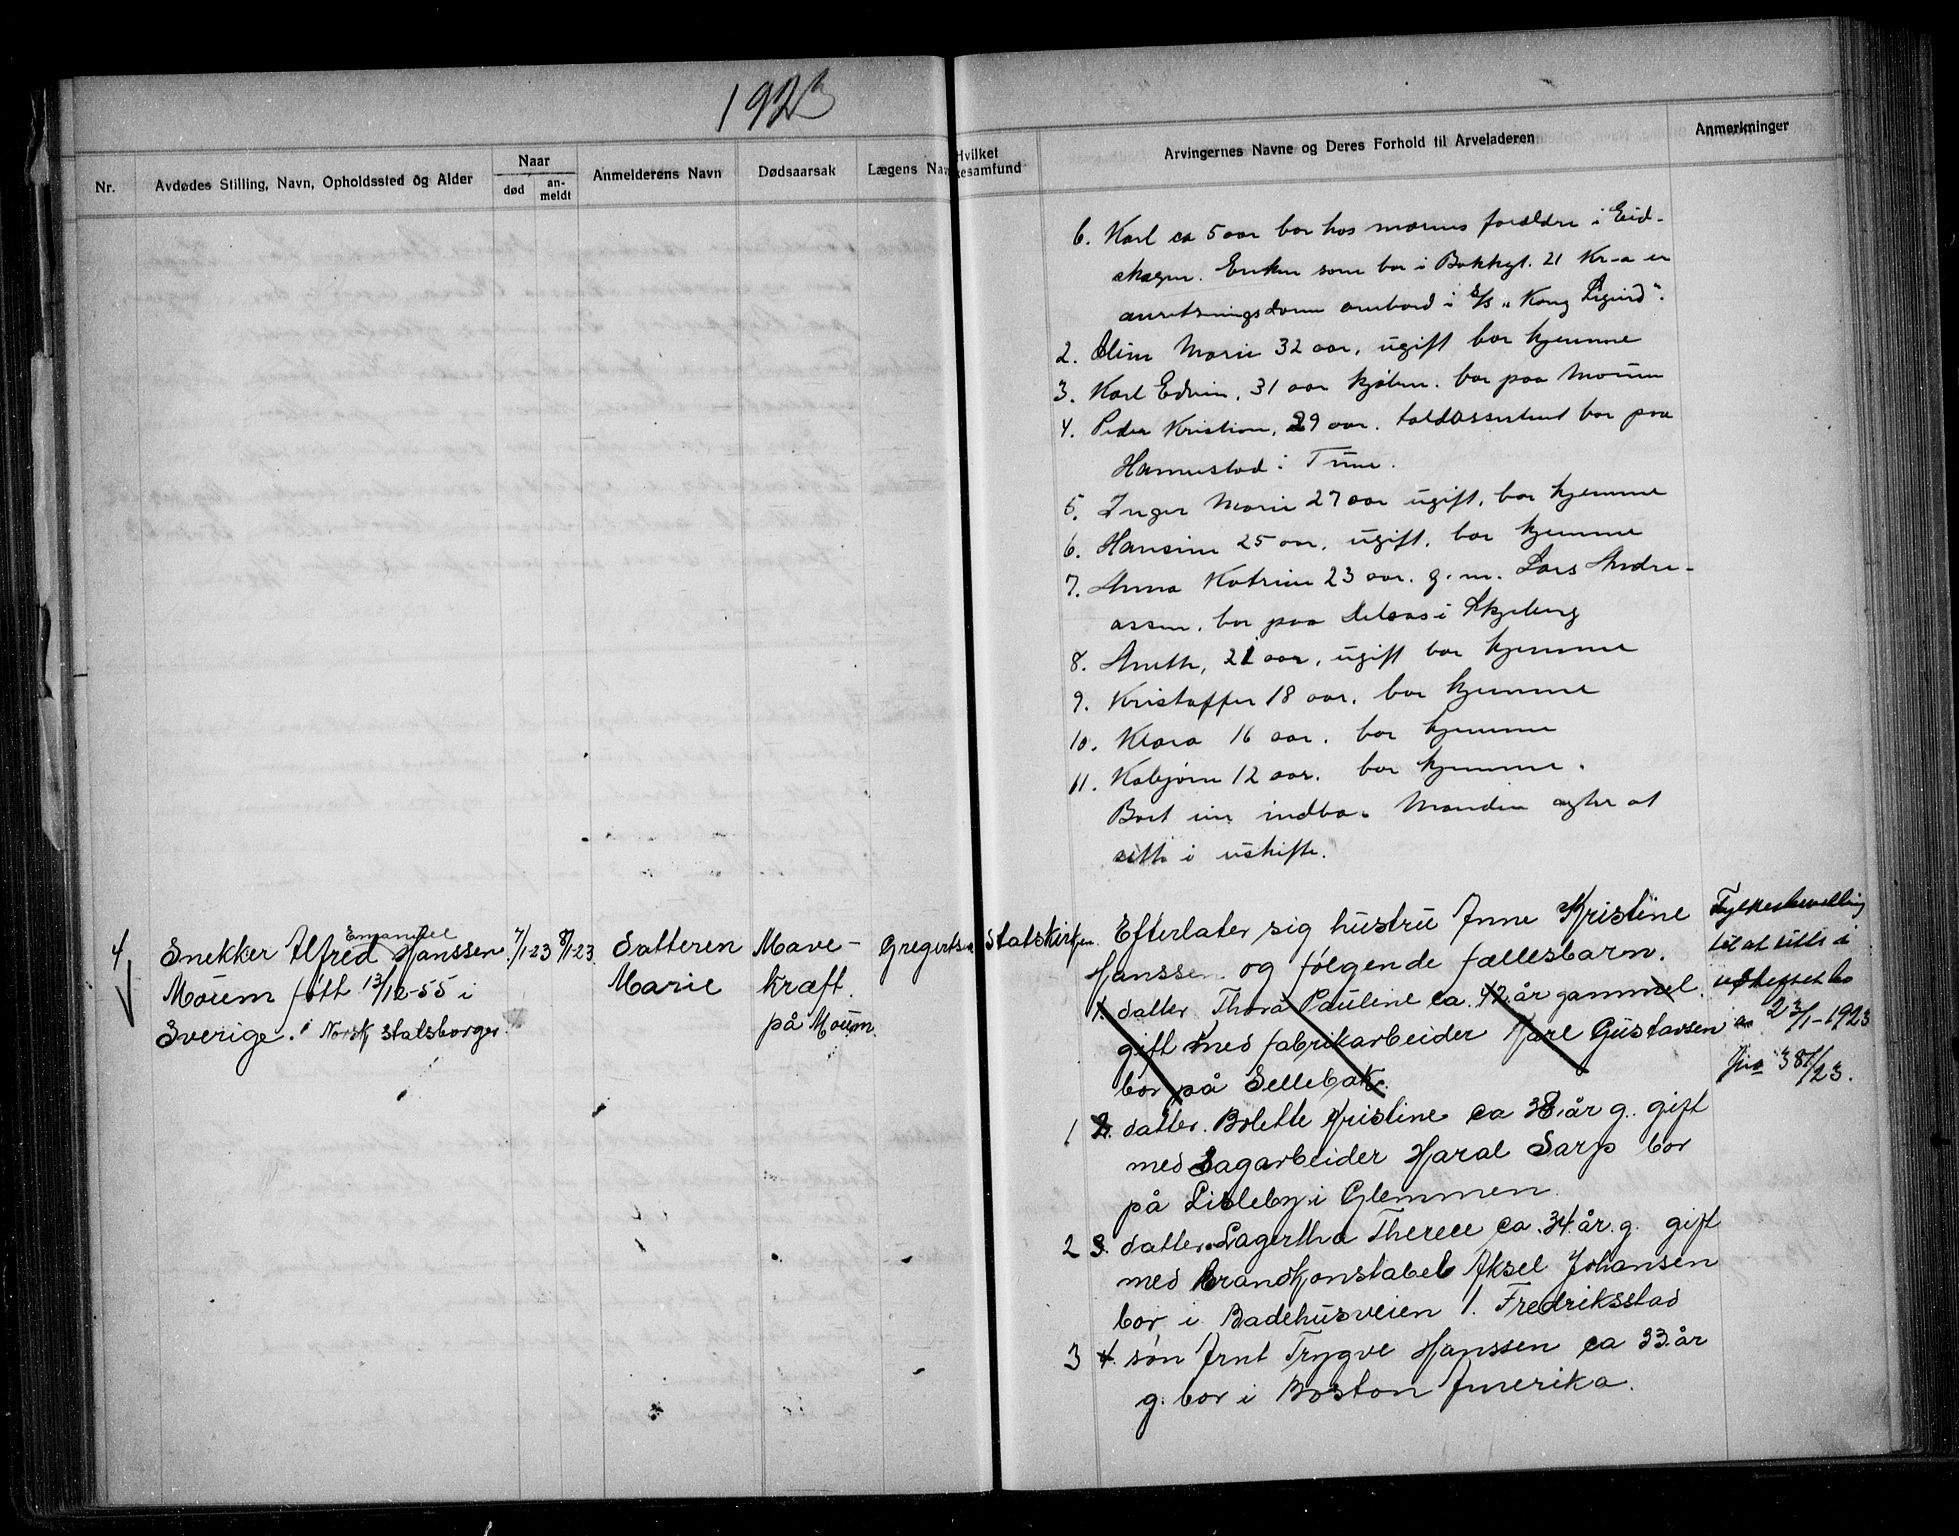 1923
Nr.
Avdødes Stilling, Navn, Opholdssted og Alder
Naar
død
an-
meldt
Anmelderens Navn
Dødsaarsak
Lægens Nav
Hvilket
kesamfund
Arvingernes Navne og Deres Forhold til Arveladeren
Anmerkninger
6. Karl ca 5 aar bor hos morens forældre i Eid-
skogen. Enken som bor i Bakkegt. 21 Kr-a er
anretningsdame ombord i s/s "Kong Sigurd".
2. Marie 32 aar, ugift bor hjemme
3. Karl Edvin, 31 aar bor paa Moum
4. Peder Kristian, 29 aar. toldassistent bor paa
Hannestad i Tune.
5. Inger Marie 27 aar ugift, bor hjemme
6. Hansine 25 aar, ugift, bor hjemme
7. Anna Katrine 23 aar. g. m. Lars Andre-
assen, bor paa i Skjeberg
8. Anethe, 21 aar, ugift bor hjemme
9. Kristoffer 18 aar, bor hjemme
10. Klara 16 aar. bor hjemme
11. Kolbjørn 12 aar. bor hjemme.
Boet indbo. Manden agter at
sitte i uskifte.
4
Snekker Alfred Emanuel Hanssen
Moum født 13/12-55 i
Sverige. Norsk statsborger.
7/1-23 8/1-23
Datteren
Marie
Mave-
kræft.
på Moum.
Gregertsen
Statskirken.
Efterlater sig hustru Anne Kristine
Hanssen og følgende fællesbarn.
1. datter Thora Pauline ca. 42 år gammel.
gift med fabrikarbeider Karl Gustavsen
bor på Sellebak.
1 2. datter. Bolette Kristine ca 38. år g. gift
med Sagarbeider Haral Sarp bor
på Lisleby i Glemmen.
2 3. datter. Lagertha Therese ca. 34. år. g. gift
med brandkonstabel Aksel Johansen
bor i Badehusveien 1. Fredriksstad
3 4. søn Arnt Trygve Hanssen ca 33. år
g. bor i Boston Amerika.
Fylkesbevilling
til at sitte i
uskiftet bo
23/1-1923
Jno 381/23.